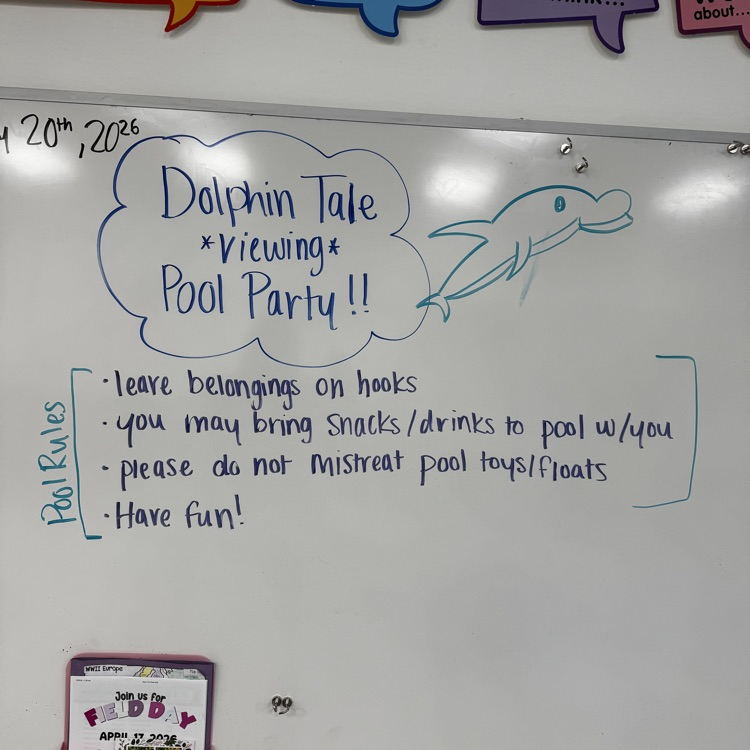 about...
20th, 2026
Dolphin Tale
*viewing*
Pool Party!!
Pool Rules
· leave belongings on hooks
· you may bring snacks/drinks to pool w/you
· please do not mistreat pool toys/floats
· Have fun!
WWII Europe
Join us for
FIELD DAY
APRIL 17, 2026